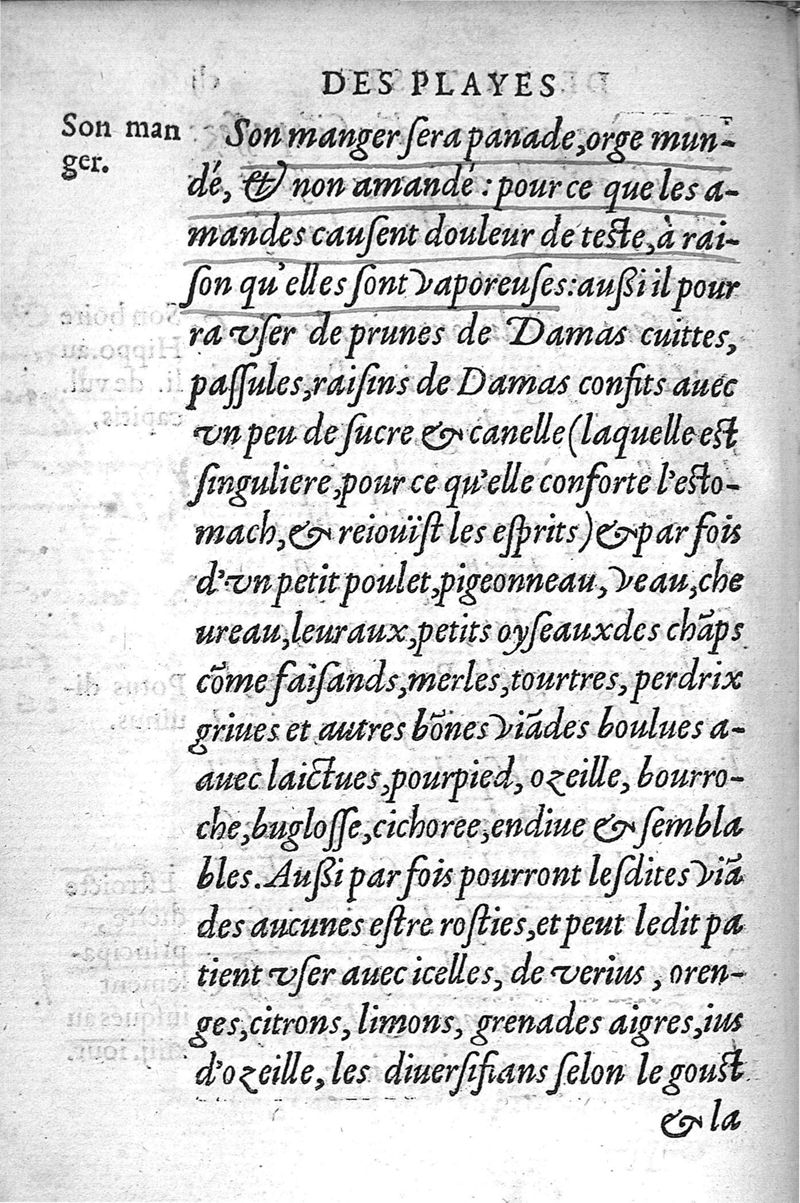 DES PLAYES
Son man
ger.
Son manger ſera panade, orge mun-
dé, & non amandé : pour ce que les a-
mandes cauſent douleur de teſte, à rai-
ſon qu'elles ſont vaporeuſes: außi il pour
ra vſer de prunes de Damas cuittes,
paſſules, raiſins de Damas confits auec
vn peu de ſucre & canelle (laquelle eſt
ſinguliere, pour ce qu'elle conforte l'eſto-
mach, & reiouïſt les eſprits) & par fois
d'vn petit poulet, pigeonneau, veau, che
ureau, leuraux, petits oyſeaux des chãps
cõme faiſands, merles, tourtres, perdrix
griues et autres bõnes viãdes boulues a-
auec laictues, pourpied, ozeille, bourro-
che, bugloſſe, cichoree, endiue & ſembla
bles. Außi par fois pourront leſdites viã
des aucunes eſtre roſties, et peut ledit pa
tient vſer auec icelles, de verius, oren-
ges, citrons, limons, grenades aigres, ius
d'ozeille, les diuerſifians ſelon le gouſt
& la